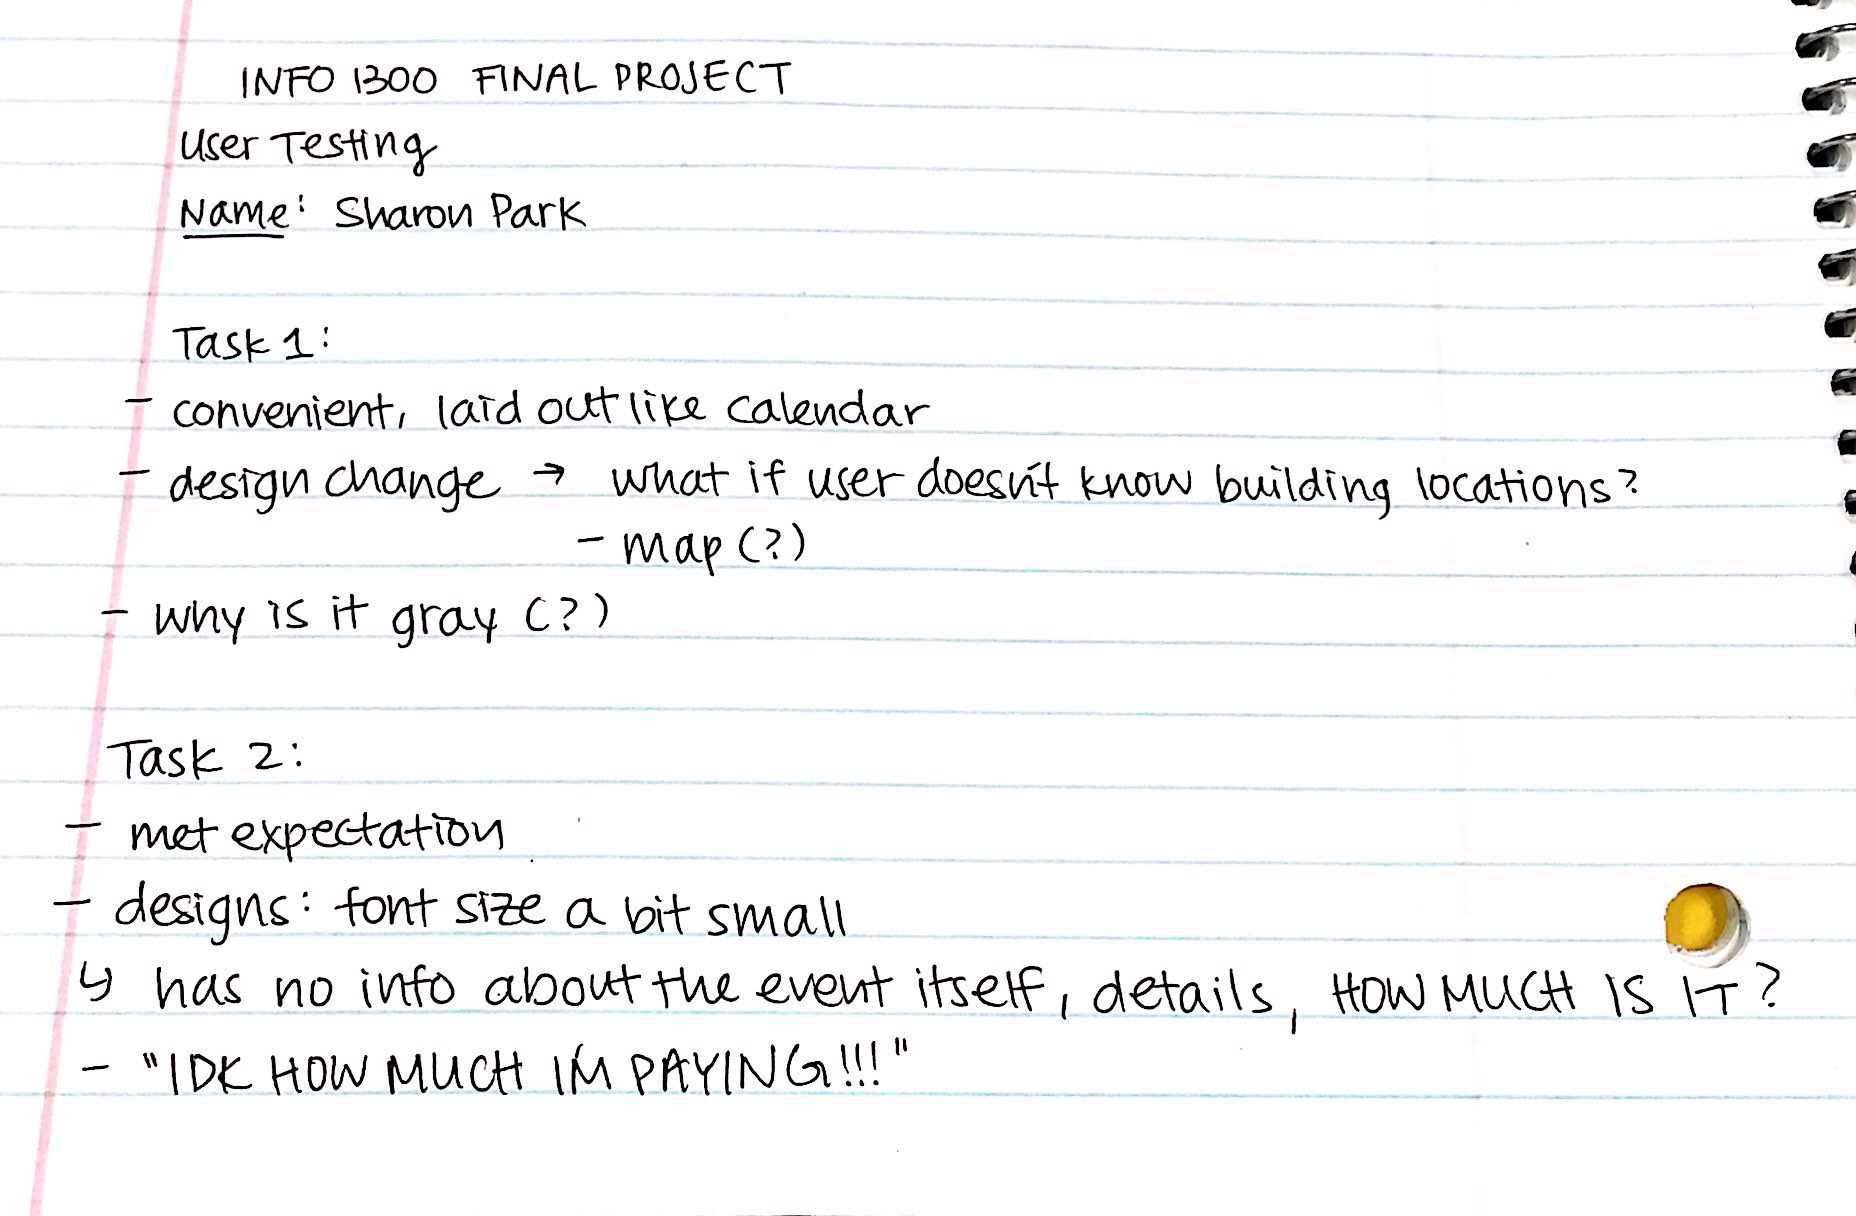 INFO 1300 FINAL PROJECT
User Testing
Name: Sharon Park
Task 1:
- convenient, laid out like calendar
- design change → what if user doesn't know building locations?
- map (?)
- why is it gray (?)
Task 2:
- met expectation
- designs: font size a bit small
↳ has no info about the event itself, details, HOW MUCH IS IT?
- "IDK HOW MUCH I'M PAYING!!!"